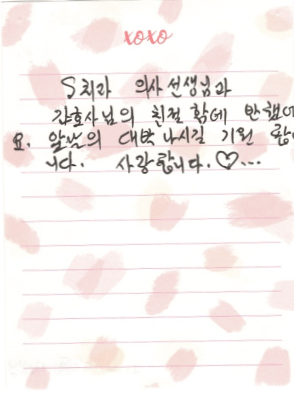 xoxo
S치과 의사선생님과
간호사님의 친절함에 반했어
요. 앞날의 대박나시길 기원합
니다. 사랑합니다.♡...